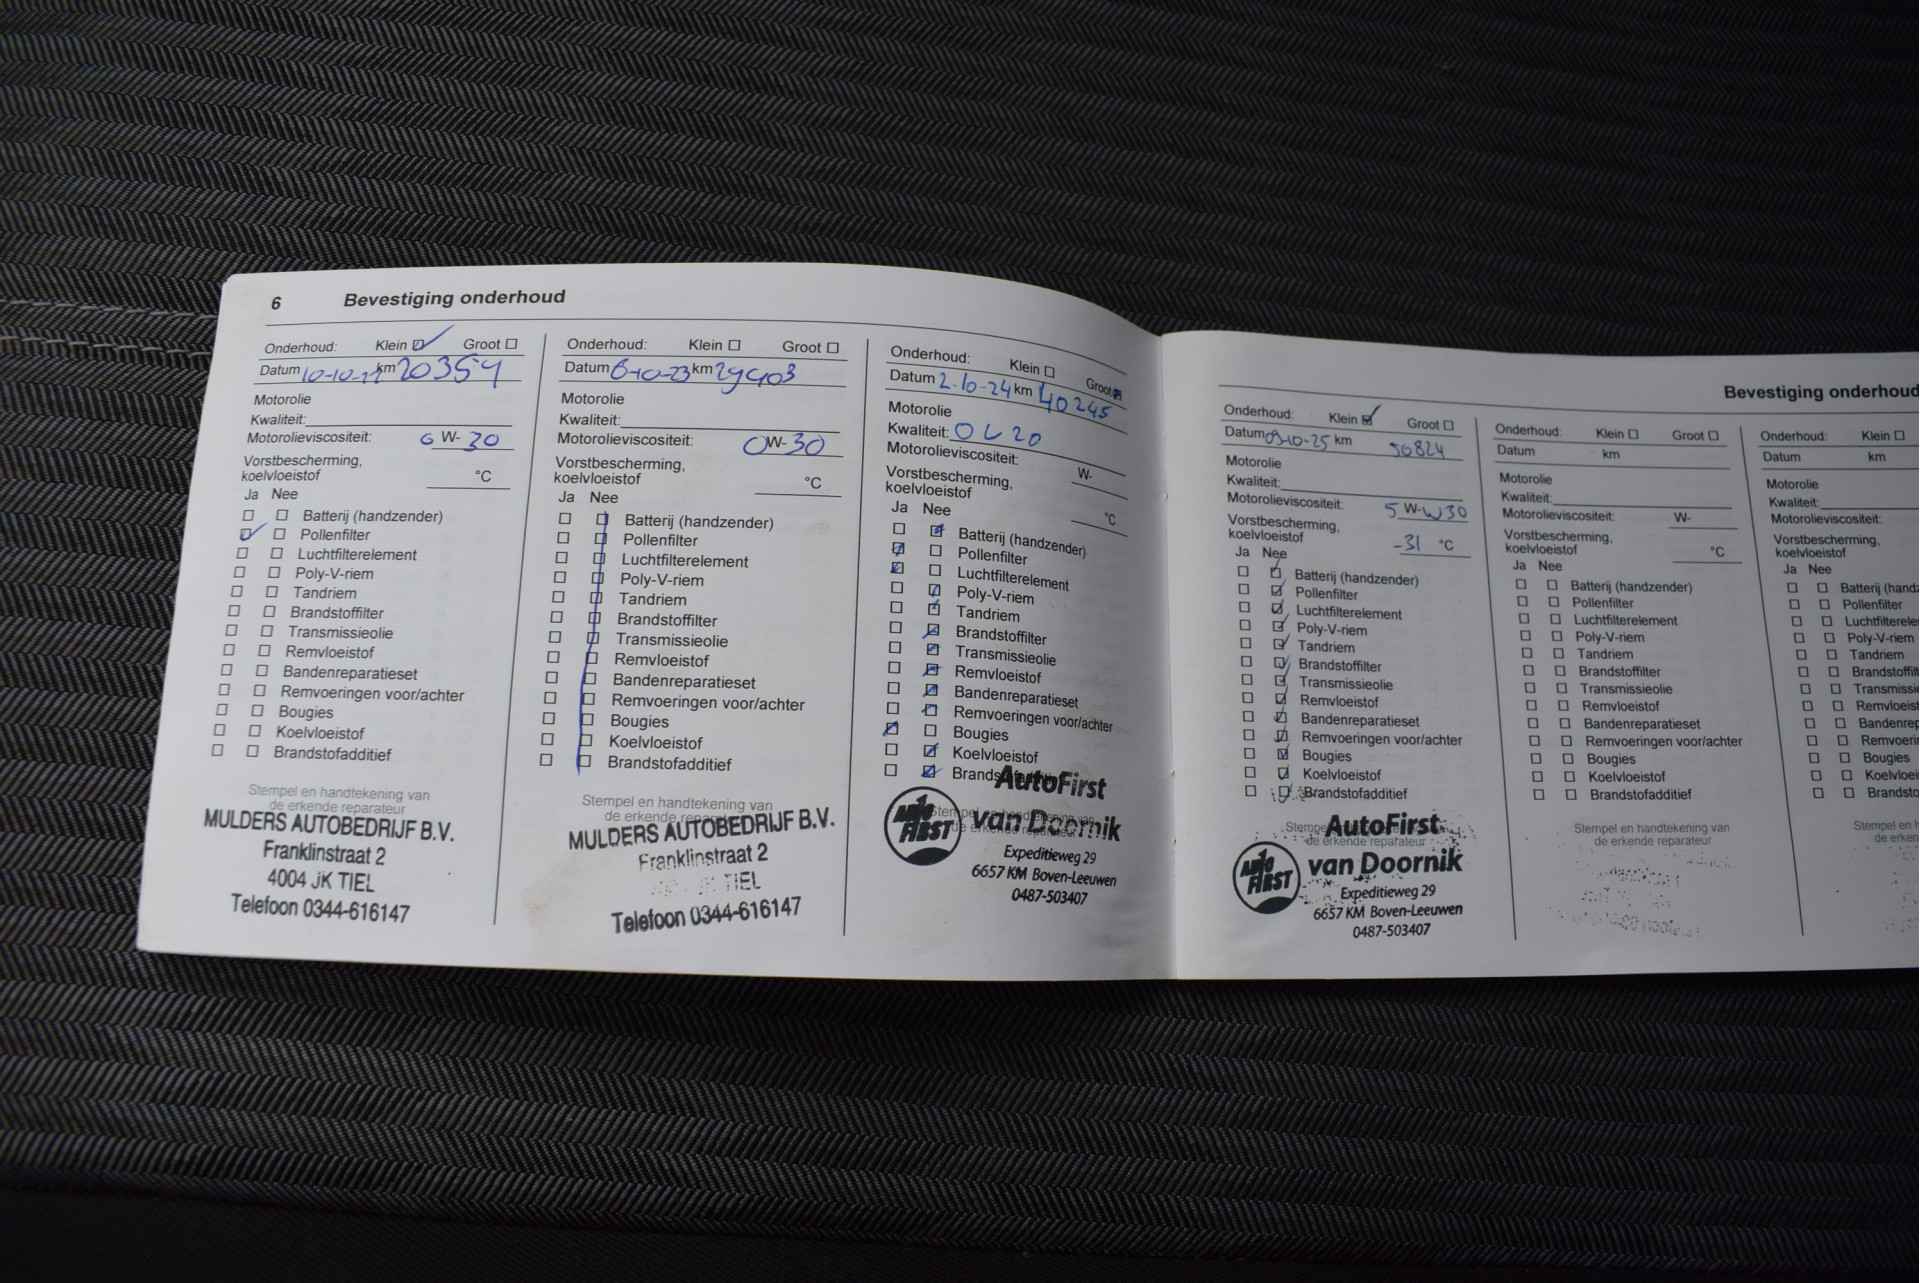 6 Bevestiging onderhoud
Onderhoud: Klein Groot
Datum 10-10-22 km 20354
Motorolie
Kwaliteit:
Motorolieviscositeit: 0 W- 30
Vorstbescherming,
koelvloeistof °C
Ja Nee
Batterij (handzender)
Pollenfilter
Luchtfilterelement
Poly-V-riem
Tandriem
Brandstoffilter
Transmissieolie
Remvloeistof
Bandenreparatieset
Remvoeringen voor/achter
Bougies
Koelvloeistof
Brandstofadditief
Stempel en handtekening van
de erkende reparateur
MULDERS AUTOBEDRIJF B.V.
Franklinstraat 2
4004 JK TIEL
Telefoon 0344-616147
Onderhoud: Klein Groot
Datum 6-10-23 km 29403
Motorolie
Kwaliteit:
Motorolieviscositeit: 0 W- 30
Vorstbescherming,
koelvloeistof °C
Ja Nee
Batterij (handzender)
Pollenfilter
Luchtfilterelement
Poly-V-riem
Tandriem
Brandstoffilter
Transmissieolie
Remvloeistof
Bandenreparatieset
Remvoeringen voor/achter
Bougies
Koelvloeistof
Brandstofadditief
Stempel en handtekening van
de erkende reparateur
MULDERS AUTOBEDRIJF B.V.
Franklinstraat 2
JK TIEL
Telefoon 0344-616147
Onderhoud: Klein Groot
Datum 2-10-24 km 40245
Motorolie
Kwaliteit: 0 W 20
Motorolieviscositeit: W-
Vorstbescherming,
koelvloeistof °C
Ja Nee
Batterij (handzender)
Pollenfilter
Luchtfilterelement
Poly-V-riem
Tandriem
Brandstoffilter
Transmissieolie
Remvloeistof
Bandenreparatieset
Remvoeringen voor/achter
Bougies
Koelvloeistof
Brandstofadditief
Stempel en handtekening van
de erkende reparateur
AutoFirst
van Doornik
Expeditieweg 29
6657 KM Boven-Leeuwen
0487-503407
AUTO FIRST
Bevestiging onderhoud
Onderhoud: Klein Groot
Datum 03-10-25 km 56824
Motorolie
Kwaliteit:
Motorolieviscositeit: 5 W- W30
Vorstbescherming,
koelvloeistof -31 °C
Ja Nee
Batterij (handzender)
Pollenfilter
Luchtfilterelement
Poly-V-riem
Tandriem
Brandstoffilter
Transmissieolie
Remvloeistof
Bandenreparatieset
Remvoeringen voor/achter
Bougies
Koelvloeistof
Brandstofadditief
Stempel en handtekening van
de erkende reparateur
AutoFirst
van Doornik
Expeditieweg 29
6657 KM Boven-Leeuwen
0487-503407
AUTO FIRST
Onderhoud: Klein Groot
Datum km
Motorolie
Kwaliteit:
Motorolieviscositeit: W-
Vorstbescherming,
koelvloeistof °C
Ja Nee
Batterij (handzender)
Pollenfilter
Luchtfilterelement
Poly-V-riem
Tandriem
Brandstoffilter
Transmissieolie
Remvloeistof
Bandenreparatieset
Remvoeringen voor/achter
Bougies
Koelvloeistof
Brandstofadditief
Stempel en handtekening van
de erkende reparateur
Onderhoud: Klein
Datum km
Motorolie
Kwaliteit:
Motorolieviscositeit:
Vorstbescherming,
koelvloeistof
Ja Nee
Batterij (handz
Pollenfilter
Luchtfilterele
Poly-V-riem
Tandriem
Brandstoffilt
Transmissi
Remvloeist
Bandenrep
Remvoerin
Bougies
Koelvloei
Brandsto
Stempel en h
de erken